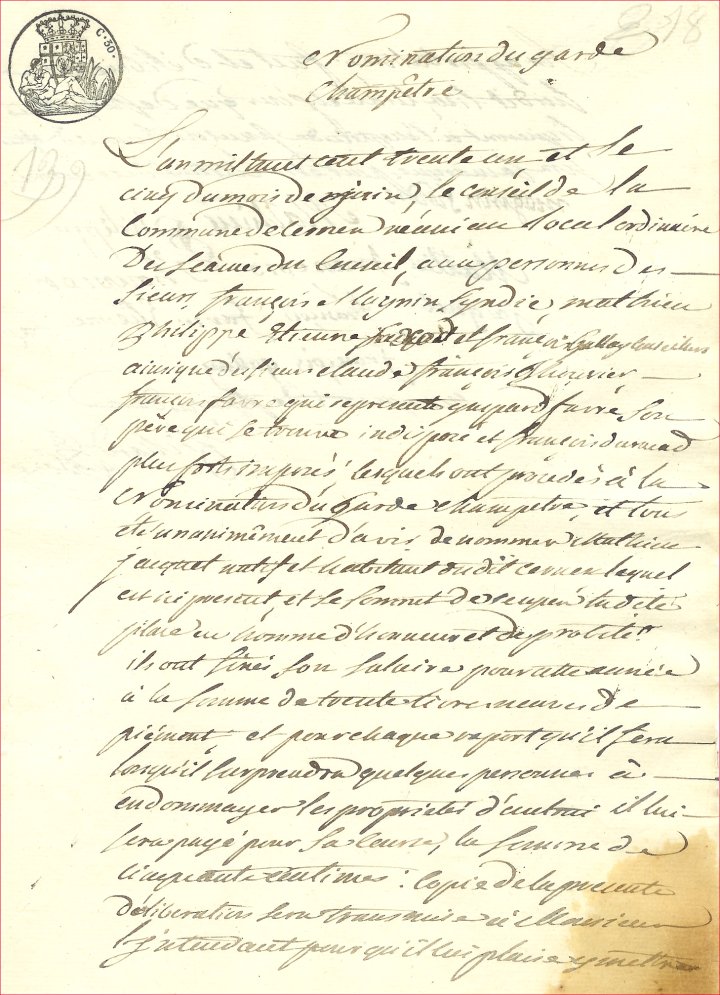 C. 30.
2.18
139
Nomination du garde
Champêtre
L'an mil huit cent trente un et le
cinq du mois de juin, le conseil de la
Commune de Cernex réuni au local ordinaire
des séances du Conseil, aux personnes des
sieurs françois Magnin syndic, mathieu
Philippe Etienne et françois Conseillers
ainsi que des sieurs claude françois
françois favre qui represente gaspard favre son
père qui se trouve indisposé et françois
plus forts imposés, lesquels ont procédés à la
Nomination du Garde Champetre, et tous
etés unanimêment d'avis de nommer Mathieu
jacquet natif et habitant dudit cernex lequel
est ici present, et se somet de ocuper ladite
place en homme d'honneur et de probité.
ils ont fixés son salaire pour cette année
à la somme de trente livres neuves de
piémont et pour chaque raport qu'il fera
lorsqu'il surprendra quelques personnes à
endommager les proprietés d'autrui il lui
sera payé pour sa course, la somme de
cinquante centimes : Copie de la presente
déliberation sera transmise à Monsieur
l'jntendant pour qu'il lui plaise y mettre